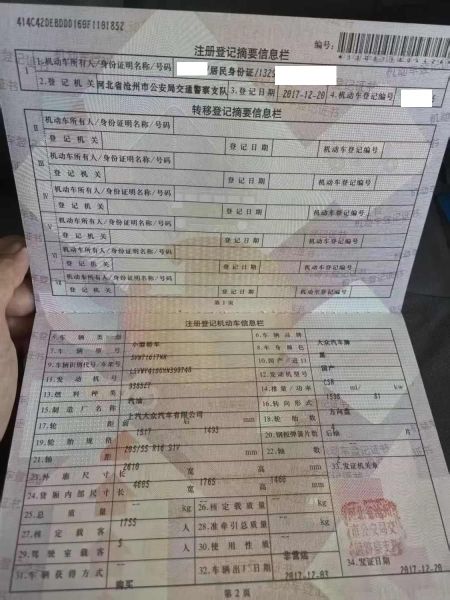 414C42DEBDDD169F119185Z
注册登记摘要信息栏
编号:
I 1.机动车所有人/身份证明名称/号码 /居民身份证/132
2.登记机关 河北省沧州市公安局交通警察支队 3.登记日期 2017-12-20 4.机动车登记编号
转移登记摘要信息栏
II 机动车所有人/身份证明名称/号码
登记机关 登记日期 机动车登记编号
III 机动车所有人/身份证明名称/号码
登记机关 登记日期 机动车登记编号
IV 机动车所有人/身份证明名称/号码
登记机关 登记日期 机动车登记编号
V 机动车所有人/身份证明名称/号码
登记机关 登记日期 机动车登记编号
VI 机动车所有人/身份证明名称/号码
登记机关 登记日期 机动车登记编号
VII 机动车所有人/身份证明名称/号码
登记机关 登记日期 机动车登记编号
第1页
注册登记机动车信息栏
5.车辆类型 小型轿车 6.车辆品牌 大众汽车牌
7.车辆型号 8.车身颜色 黑
9.车辆识别代号/车架号 10.国产/进口 国产
11.发动机号 12.发动机型号 CSR
13.燃料种类 汽油 14.排量/功率 1598 ml/ 81 kw
15.制造厂名称 上汽大众汽车有限公司 16.转向形式 方向盘
17.轮距 前 1517 后 1493 mm 18.轮胎数 4
19.轮胎规格 205/55 R16 91V 20.钢板弹簧片数 后轴 -- 片
21.轴距 2610 mm 22.轴数 2
23.外廓尺寸 长 4605 宽 1765 高 1460 mm 33.发证机关章
24.货厢内部尺寸 长 -- 宽 -- 高 -- mm
25.总质量 1755 kg 26.核定载质量 -- kg
27.核定载客 5 人 28.准牵引总质量 -- kg
29.驾驶室载客 -- 人 30.使用性质 非营运
31.车辆获得方式 购买 32.车辆出厂日期 2017-12-03 34.发证日期 2017-12-20
第2页